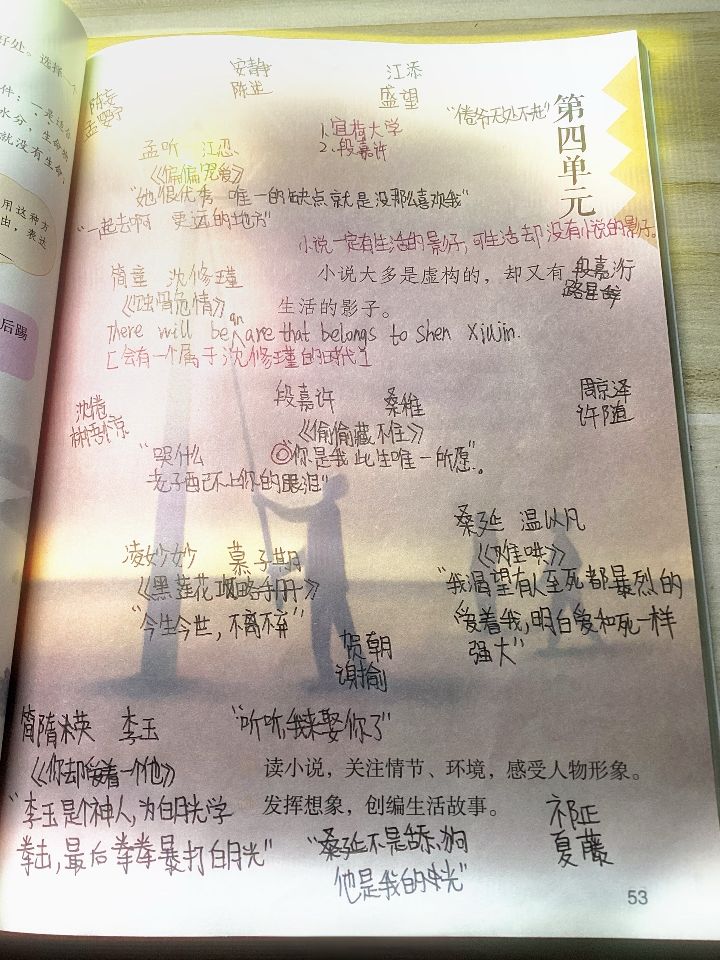 好处。选择一个
件：一是适合
水分，生命物
就没有生命，
用这种方
由，表达
后踢
安静
陈进
江添
盛望
陈妄
孟婴宁
“倦爷无处不在”
第四单元
1.宜荷大学
2.段嘉许
孟听 江忍
《偏偏宠爱》
“她很优秀 唯一的缺点就是没那么喜欢我”
“一起去啊 更远的地方”
小说一定有生活的影子，可生活却没有小说的影子。
简童 沈修瑾
《蚀骨危情》
小说大多是虚构的，却又有
生活的影子。
段嘉衍
路星辞
There will be an are that belongs to Shen Xiujin.
[会有一个属于沈修瑾的时代]
沈倦
林语惊
段嘉许 桑稚
《偷偷藏不住》
周京泽
许随
“哭什么
老子西己不上你的眼泪”
“你是我此生唯一所愿”。
桑延 温以凡
《难哄》
“我渴望有人至死都暴烈的
爱着我，明白爱和死一样
强大”
凌妙妙 慕子期
《黑莲花攻略手册》
“今生今世，不离不弃”
贺朝
谢揄
简隋英 李玉
“听听，我来娶你了”
《你却爱着一个他》
“李玉是个神人，为白月光学
拳击，最后拳拳暴打白月光”
读小说，关注情节、环境，感受人物形象。
发挥想象，创编生活故事。
“桑延不是舔狗
他是我的光”
祁正
夏藤
53